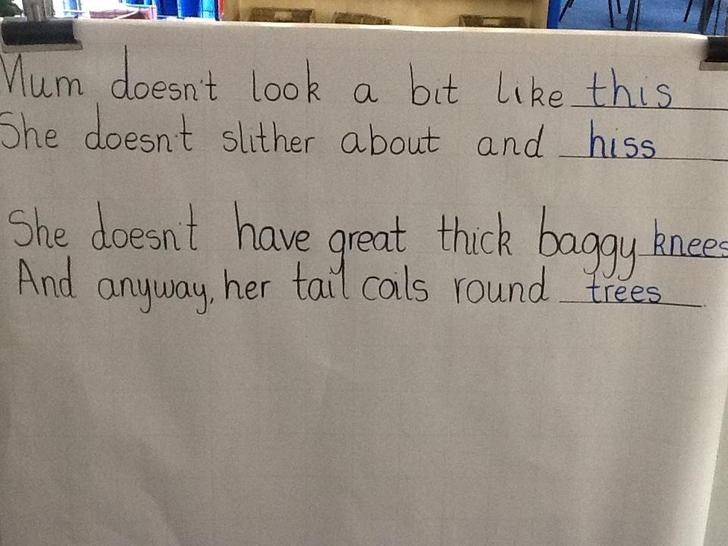 Mum doesn't look a bit like this
She doesn't slither about and hiss
She doesn't have great thick baggy knees
And anyway, her tail coils round trees